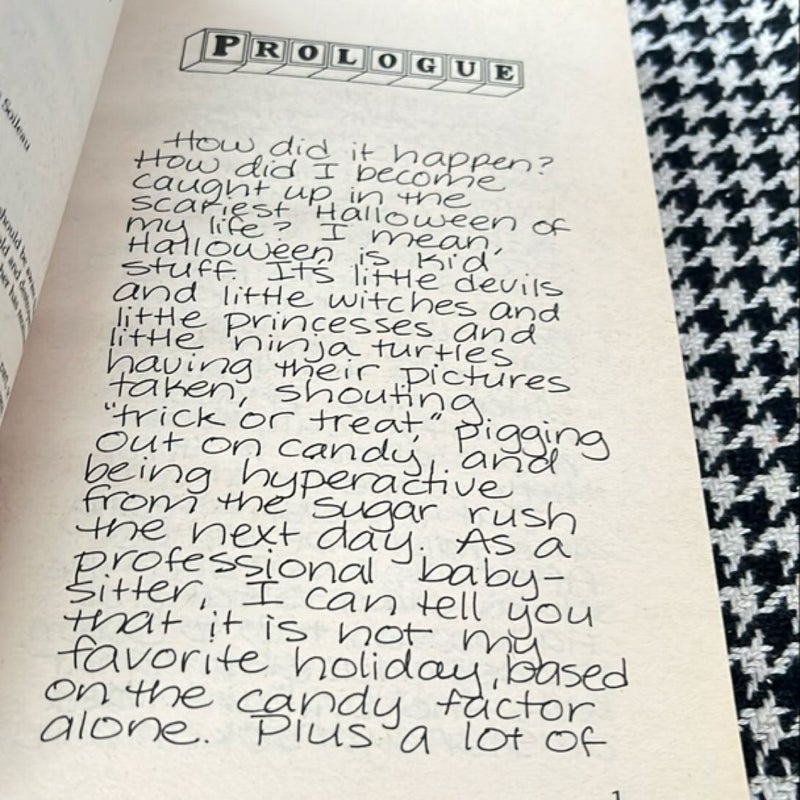 PROLOGUE
How did it happen?
How did I become
caught up in the
scariest Halloween of
my life? I mean,
Halloween is kid
stuff. It's little devils
and little witches and
little princesses and
little ninja turtles
having their pictures
taken, shouting
"trick or treat," pigging
out on candy, and
being hyperactive
from the sugar rush
the next day. As a
professional baby-
sitter, I can tell you
that it is not my
favorite holiday, based
on the candy factor
alone. Plus a lot of
1
Soileau